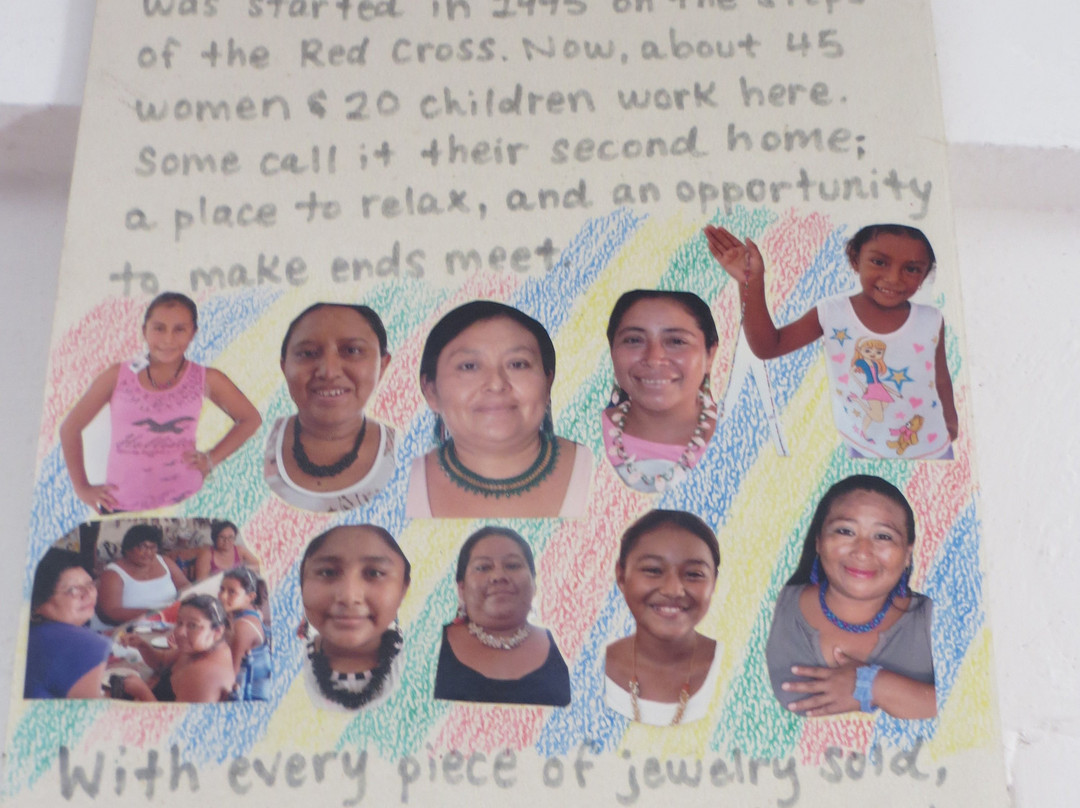 was started in 1995 on the steps
of the Red Cross. Now, about 45
women & 20 children work here.
Some call it their second home;
a place to relax, and an opportunity
to make ends meet.
With every piece of jewelry sold,